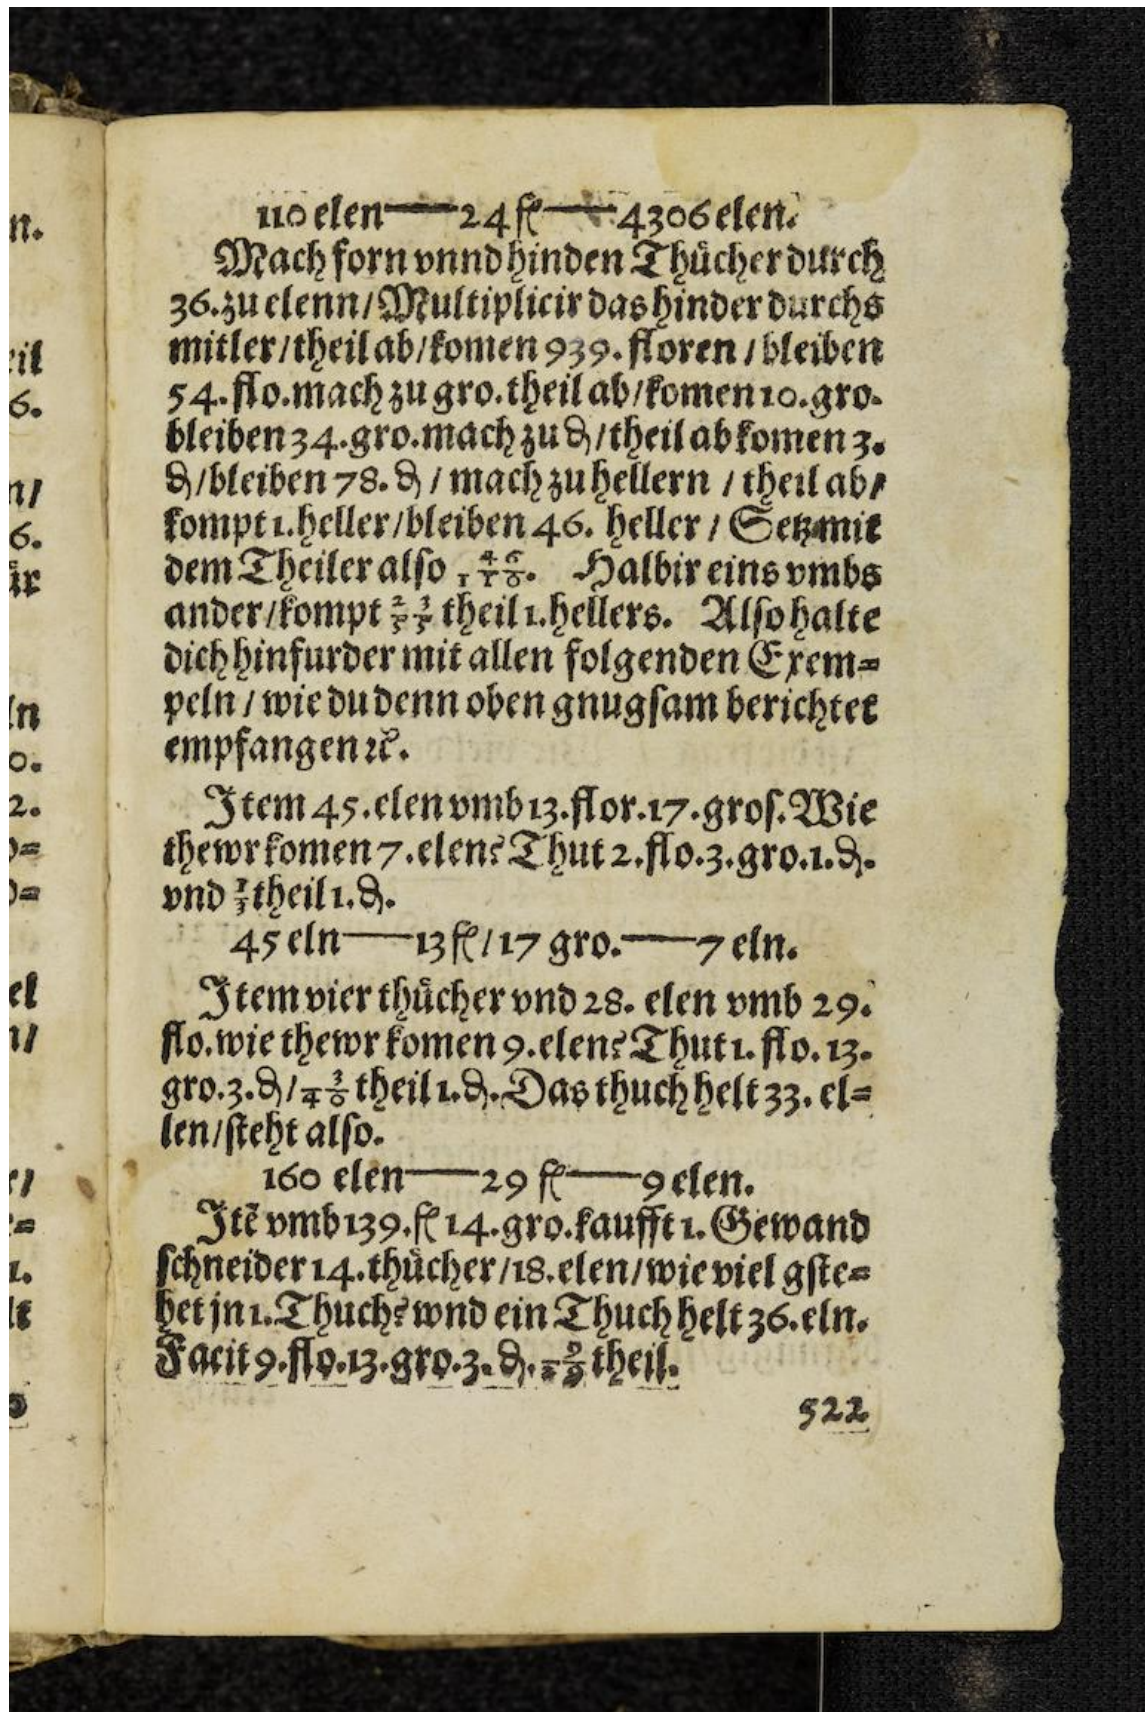 110 elen——24 fl——4306 elen.
Mach forn vnnd hinden Thuͤcher durch
36. zu elenn / Multiplicir das hinder durchs
mitler / theil ab / komen 939. floren / bleiben
54. flo. mach zu gro. theil ab / komen 10. gro.
bleiben 34. gro. mach zu ₰ / theil ab komen 3.
₰ / bleiben 78. ₰ / mach zu hellern / theil ab /
kompt 1. heller / bleiben 46. heller / Setz mit
dem Theiler also 46/110. Halbir eins vmbs
ander / kompt 23/55 theil 1. hellers. Also halte
dich hinfurder mit allen folgenden Exem=
peln / wie du denn oben gnugsam berichtet
empfangen ꝛc̃.
Item 45. elen vmb 13. flor. 17. gros. Wie
thewr komen 7. elen? Thut 2. flo. 3. gro. 1. ₰.
vnd 1/3 theil 1. ₰.
45 eln——13 fl / 17 gro.——7 eln.
Item vier thuͤcher vnd 28. elen vmb 29.
flo. wie thewr komen 9. elen? Thut 1. flo. 13.
gro. 3. ₰ / 3/40 theil 1. ₰. Das thuch helt 33. el=
len / steht also.
160 elen——29 fl——9 elen.
Itẽ vmb 139. fl 14. gro. kaufft 1. Gewand
schneider 14. thuͤcher / 18. elen / wie viel gste=
het jn 1. Thuch? wnd ein Thuch helt 36. eln.
Facit 9. flo. 13. gro. 3. ₰. 9/29 theil.
522